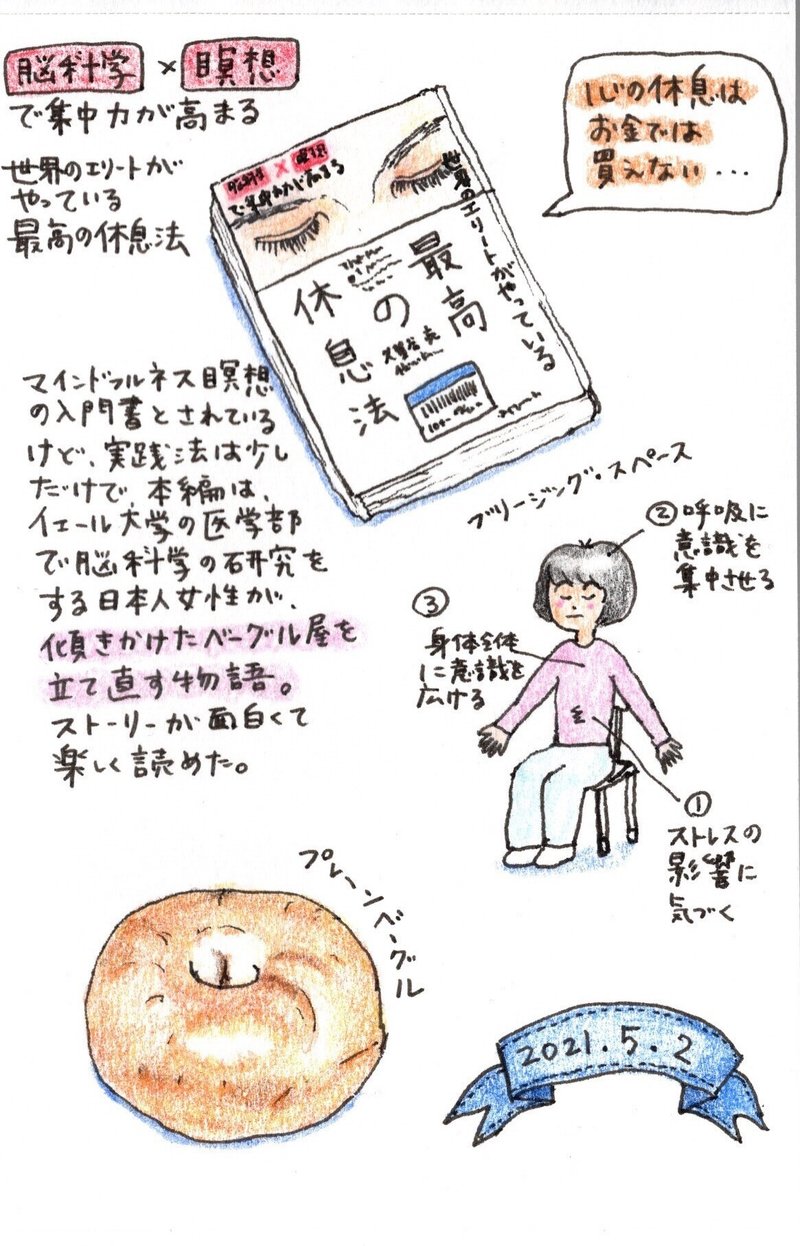 脳科学×瞑想
で集中力が高まる
世界のエリートが
やっている
最高の休息法
心の休息は
お金では
買えない…
脳科学×瞑想
で集中力が高まる
世界のエリートがやっている
最高
の
休息法
久賀谷亮
マインドフルネス瞑想
の入門書とされている
けど、実践法は少し
だけで、本編は、
イェール大学の医学部
で脳科学の研究を
する日本人女性が、
傾きかけたベーグル屋を
立て直す物語。
ストーリーが面白くて
楽しく読めた。
ブリージング・スペース
②呼吸に
意識を
集中させる
③
身体全体
に意識を
広げる
①
ストレスの
影響に
気づく
プレーンベーグル
2021.5.2